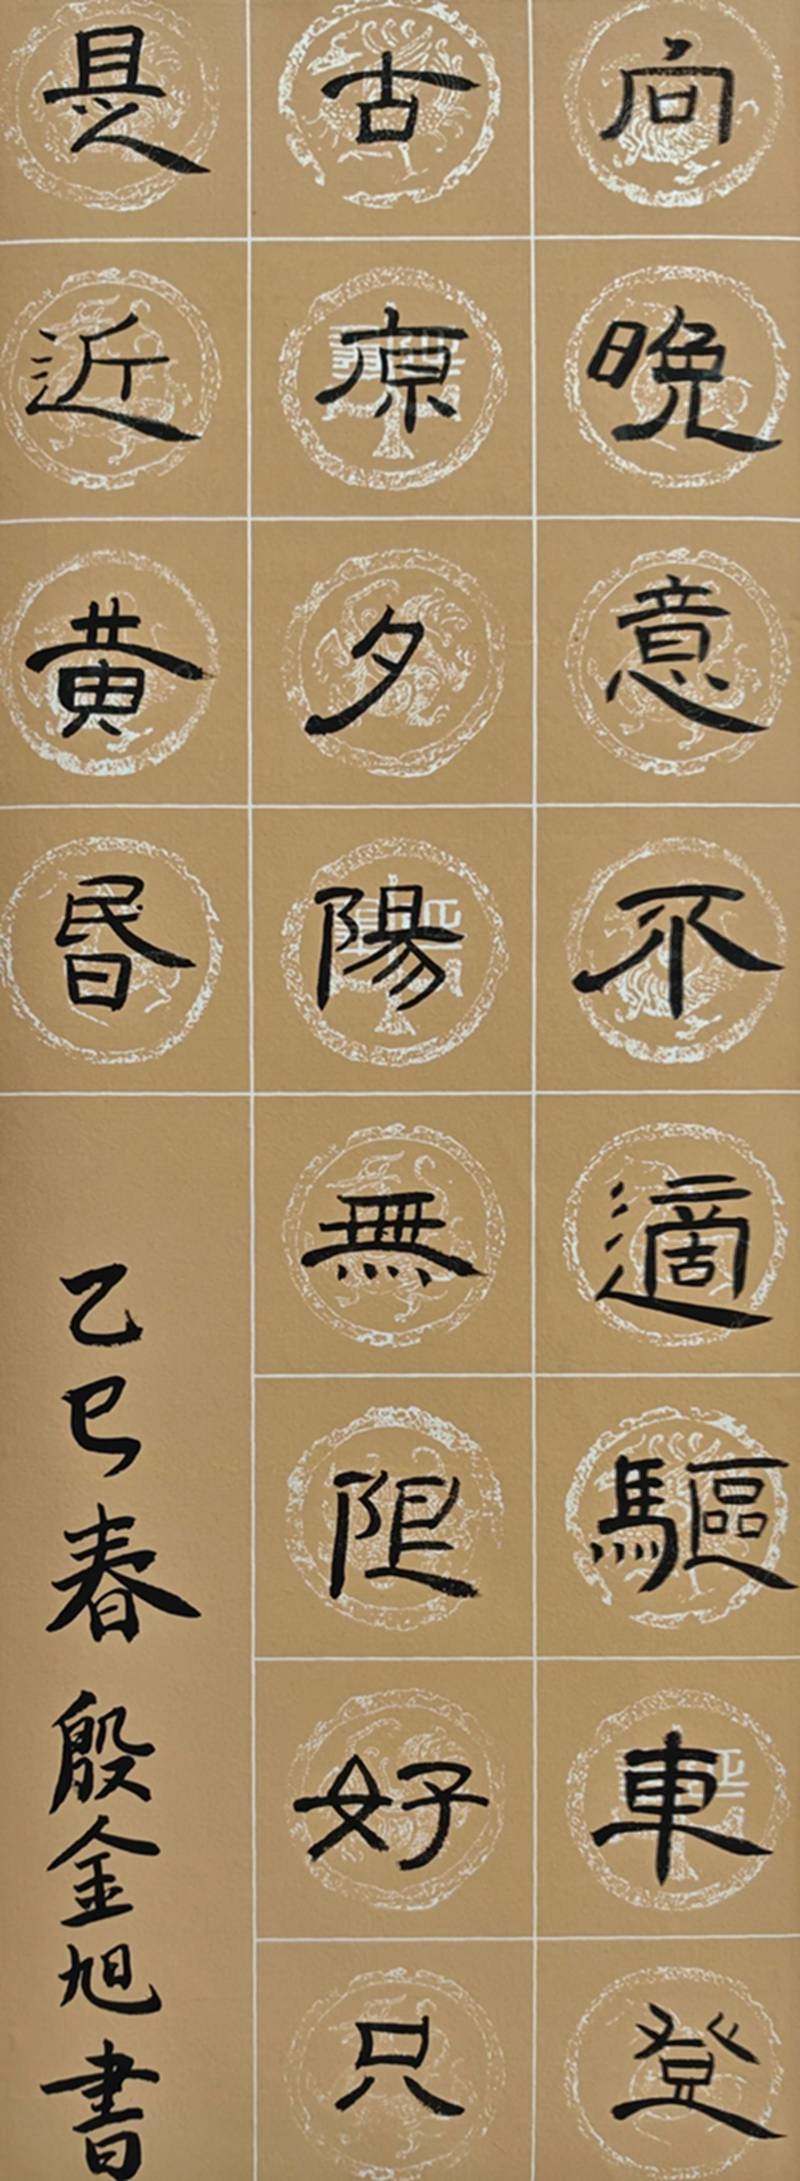 向晚意不適驅車登
古原夕陽無限好只
是近黄昏
乙巳春殷金旭書